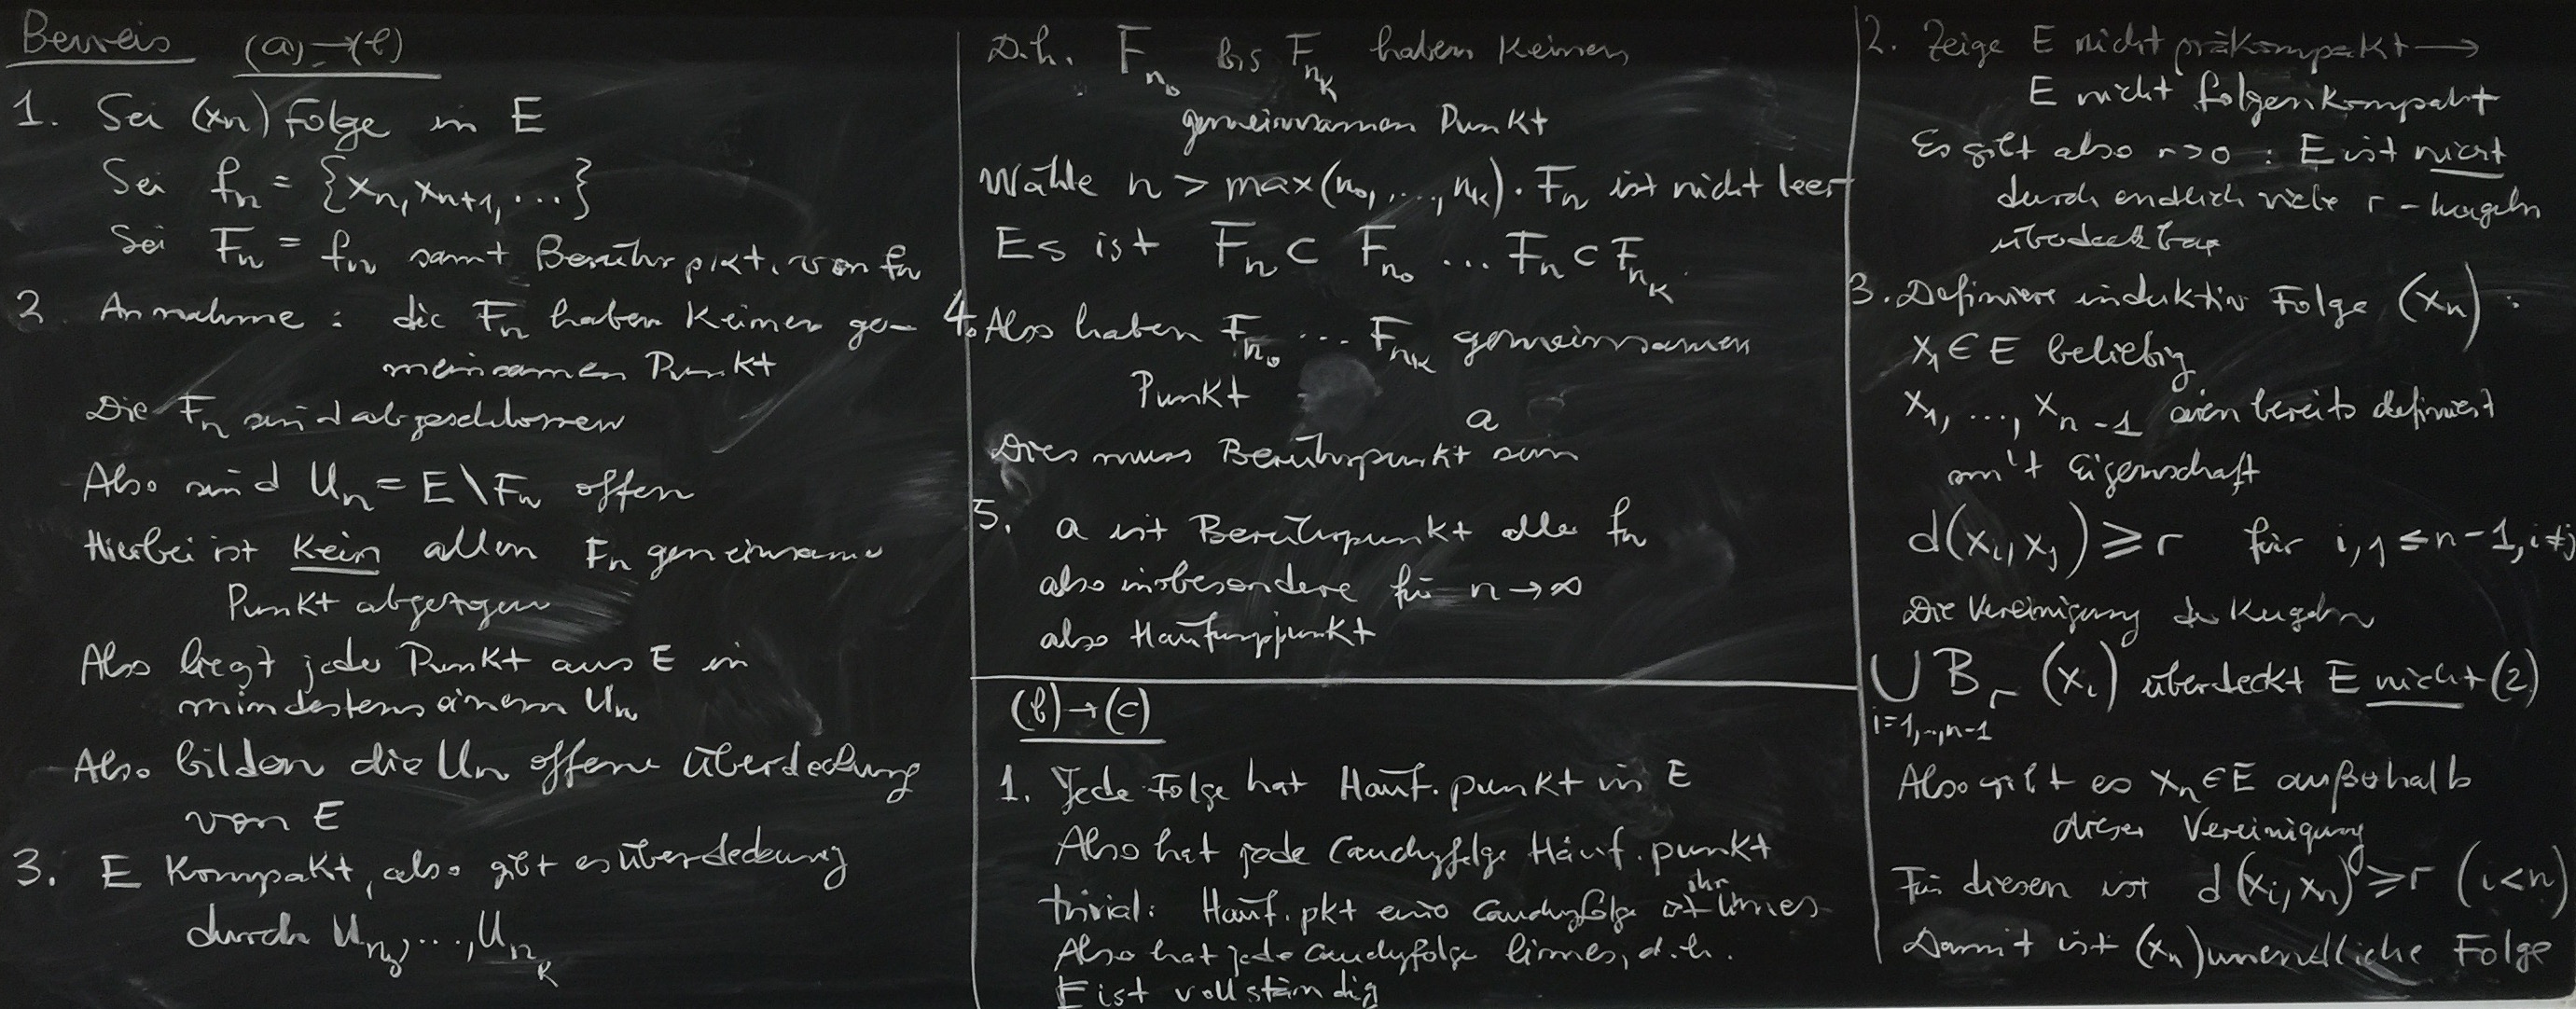 Beweis (a)→(b)
1. Sei (xn) Folge in E
Sei fn = {xn, xn+1, ...}
Sei Fn = fn samt Berührpkt. von fn
2 Annahme: die Fn haben keinen ge-
meinsamen Punkt
Die Fn sind abgeschlossen
Also sind Un = E \ Fn offen
Hierbei ist kein allen Fn gemeinsame
Punkt abgezogen
Also liegt jeder Punkt aus E in
mindestens einem Un
Also bilden die Un offene Überdeckung
von E
3. E kompakt, also gibt es Überdeckung
durch Un0, ..., Unk
D.h. Fn0 bis Fnk haben keinen
gemeinsamen Punkt
Wähle n > max(n0, ..., nk). Fn ist nicht leer
Es ist Fn ⊂ Fn0 ... Fn ⊂ Fnk.
4. Also haben Fn0 ... Fnk gemeinsamen
Punkt
a
Dies muss Berührpunkt sein
5. a ist Berührpunkt aller fn
also insbesondere für n→∞
also Häufungspunkt
(b)→(c)
1. Jede Folge hat Häuf.punkt in E
Also hat jede Cauchyfolge Häuf.punkt
trivial: Häuf.pkt einer Cauchyfolge ist ihr limes
Also hat jede Cauchyfolge limes, d.h.
E ist vollständig
2. Zeige E nicht präkompakt →
E nicht folgenkompakt
Es gilt also r>0 : E ist nicht
durch endlich viele r-Kugeln
überdeckbar
3. Definiere induktiv Folge (xn) :
x1 ∈ E beliebig
x1, ..., xn-1 seien bereits definiert
mit Eigenschaft
d(xi, xj) ≥ r für i,j ≤ n-1, i≠j
Die Vereinigung der Kugeln
⋃ Br (xi) überdeckt E nicht (2)
i=1,..,n-1
Also gibt es xn ∈ E außerhalb
dieser Vereinigung
Für diesen ist d(xi, xn) ≥ r (i<n)
Damit ist (xn) unendliche Folge